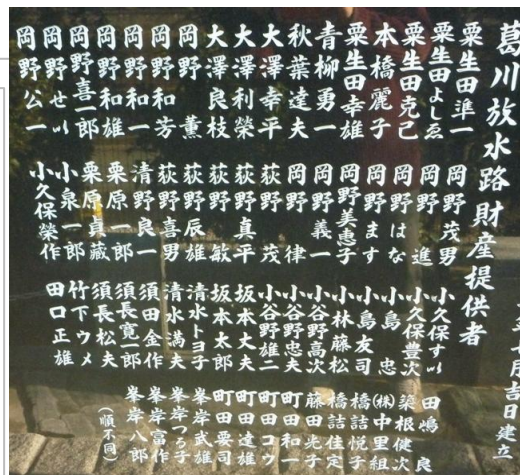 月吉日建立
葛川放水路財産提供者
粟生田準一
粟生田よしゑ
粟生田克己
本橋麗子
粟生田幸雄
青柳勇一
秋葉達夫
大澤幸平
大澤利榮
大澤良枝
岡野薫
岡野和芳
岡野和一
岡野和雄
岡野喜一郎
岡野せい
岡野公一
岡野茂男
岡野進
岡野はな
岡野ます
岡野美恵子
岡野義一
岡野律
荻野茂
荻野真平
荻野敏
荻野辰雄
荻野喜男
清野良一
栗原一郎
栗原真蔵
小泉一郎
小久保榮作
小久保すい
小久保豊次
小島忠
小島友司
小林藤松
小谷野高次
小谷野忠夫
小谷野雄二
坂本丈夫
坂本太郎
清水トヨ子
清水満夫
須田金作
須長寛一郎
須長松夫
竹下ウメ
田口正雄
田嶋良
築根健次
㈱中里組
橋詰悦子
橋詰佳定
藤田光子
町田和一
町田コウ
町田達雄
町田要司
峯岸武雄
峯岸つる子
峯岸富作
峯岸八郎
(順不同)